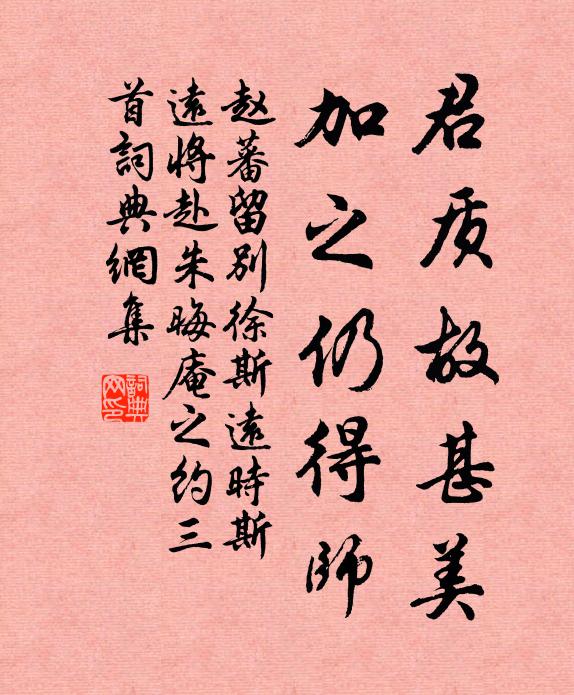 君质故甚美
加之仍得師
赵蕃留别徐斯遠時斯
遠將赴朱晦庵之约三
首詞典網集
詞典
网印